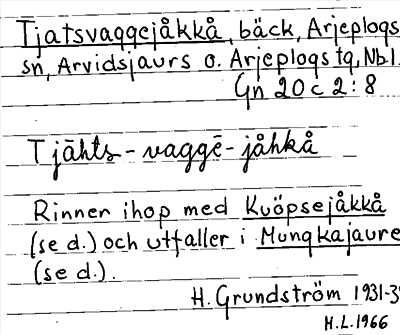 Tjatsvaggejåkkå, bäck, Arjeplogs
sn, Arvidsjaurs o. Arjeplogs tg, Nb l.
Gn 20 c 2:8
Tjāhts-vaggē-jåhkå
Rinner ihop med Kuöpsejåkkå
(se d.) och utfaller i Munqkajaure
(se d.).
H. Grundström 1931-3
H.L. 1966